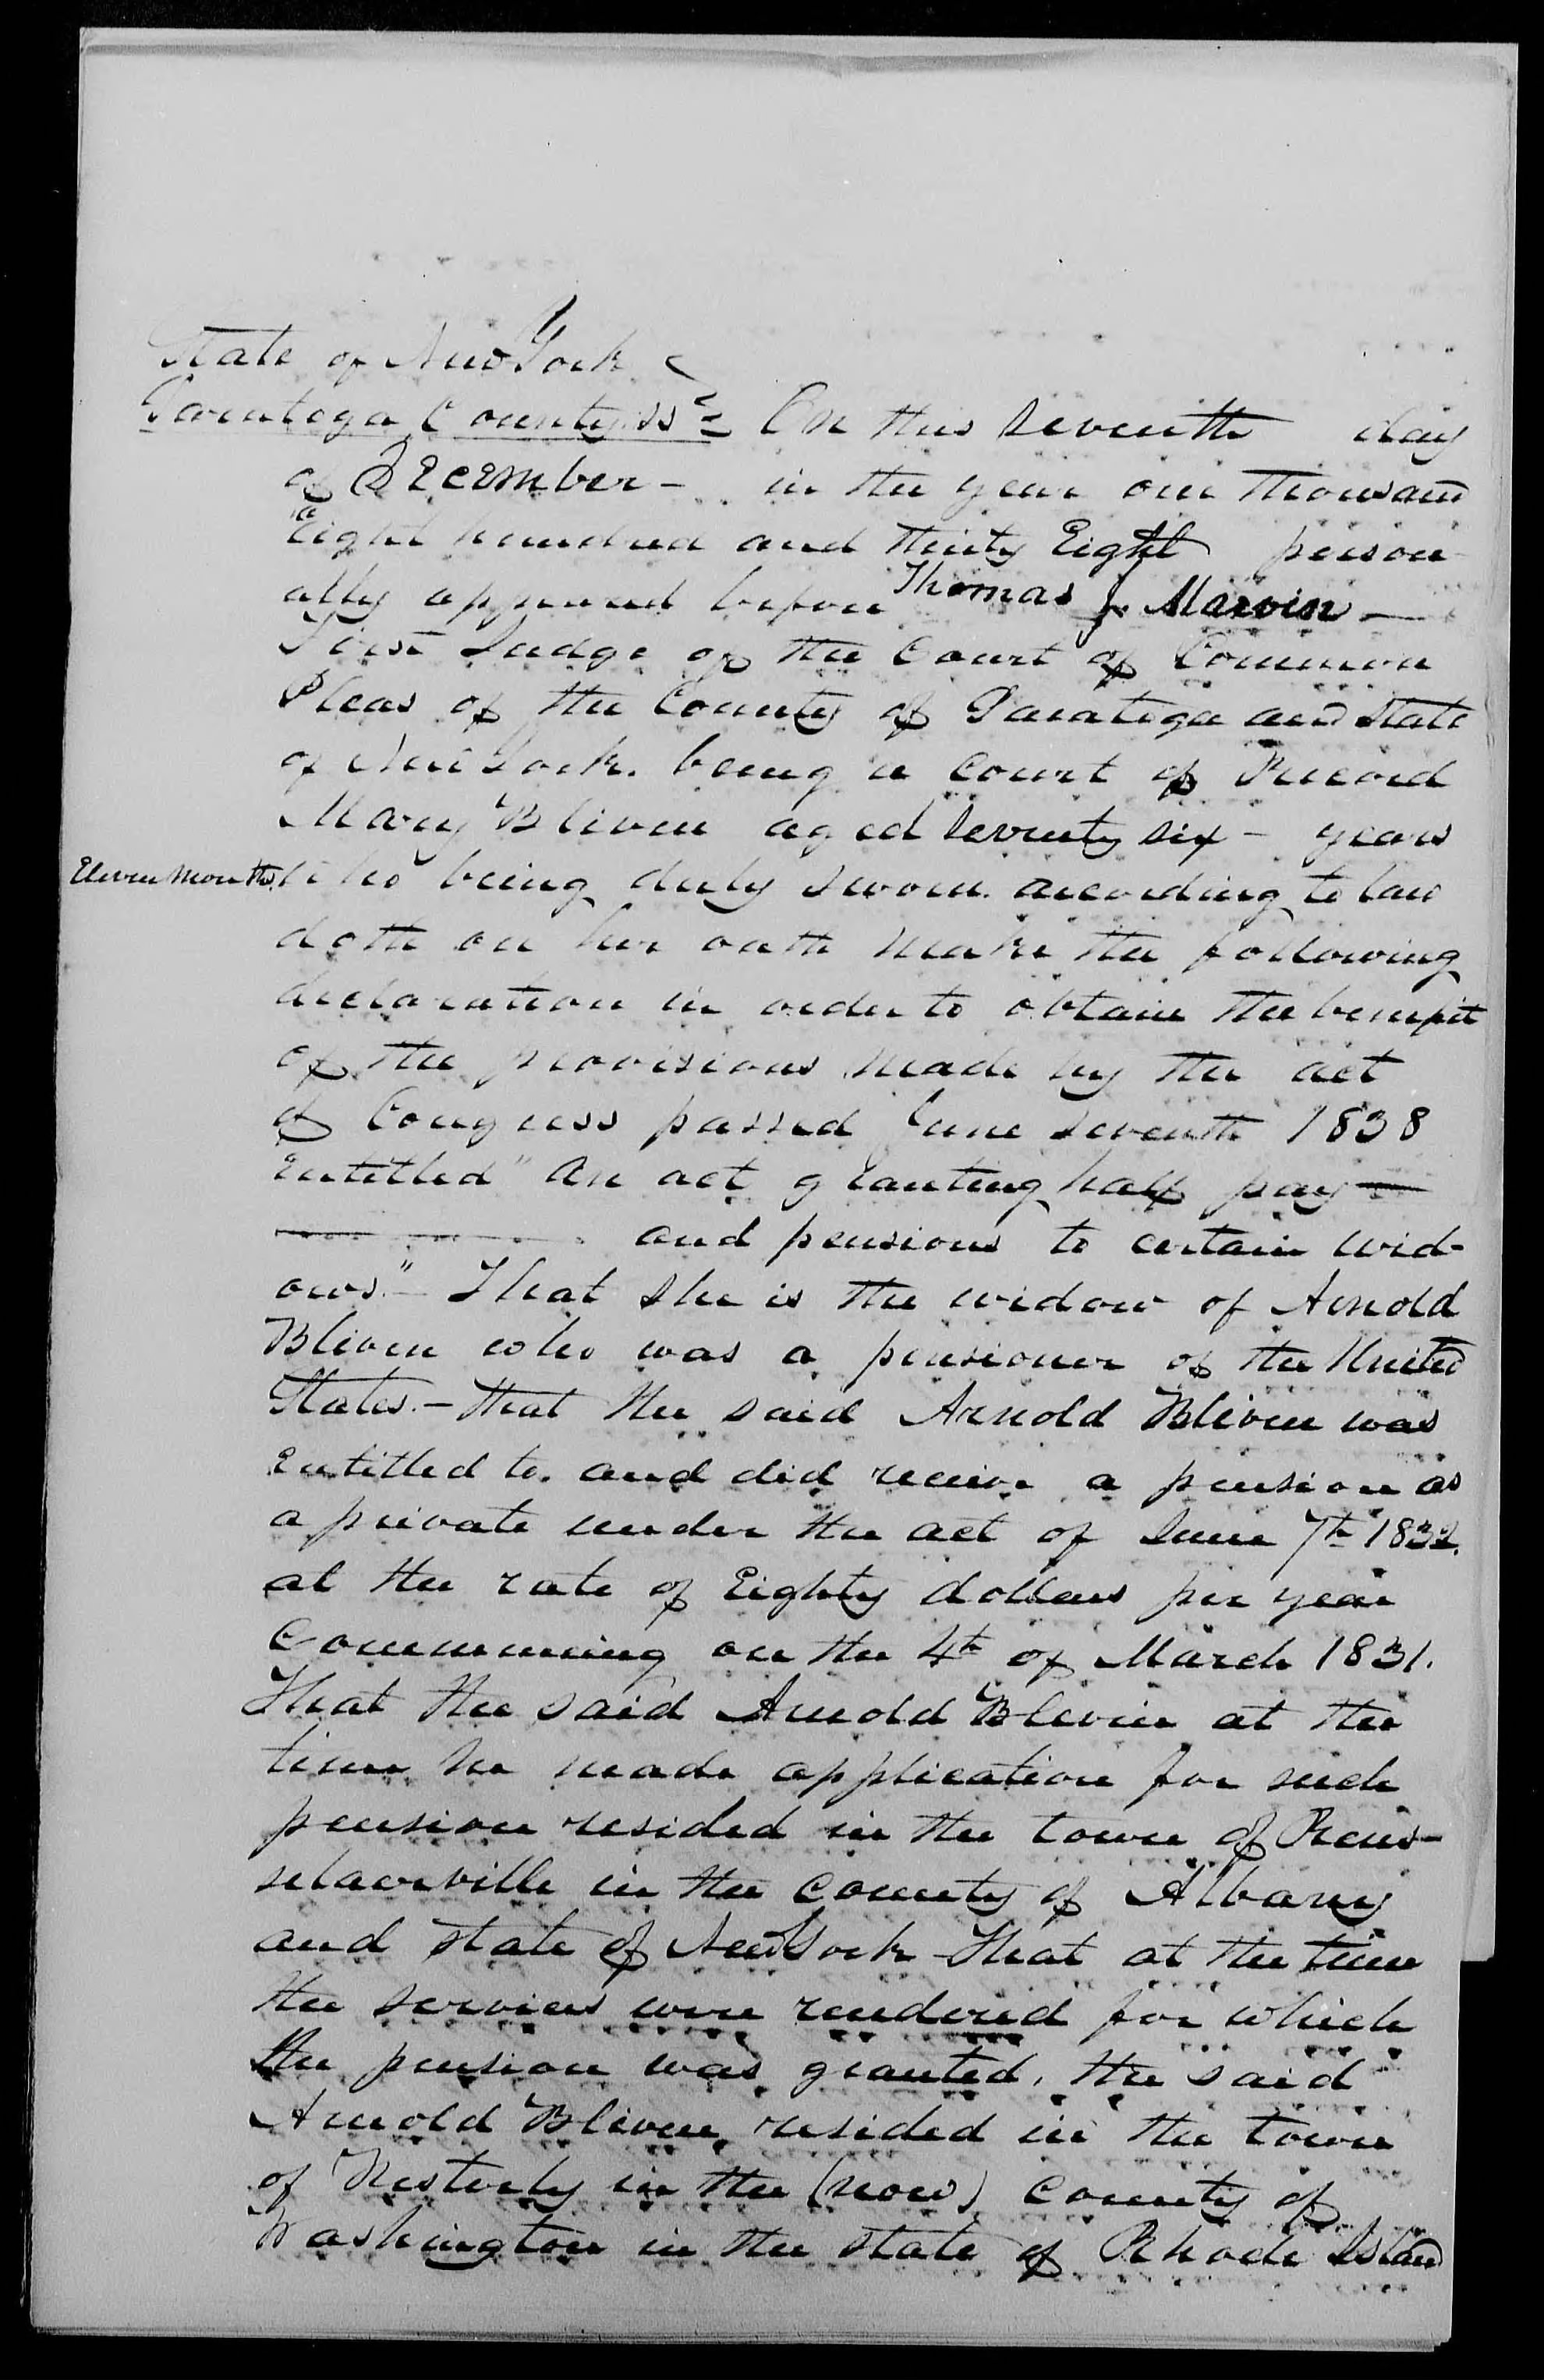 State of New York
Saratoga County ss On this seventh day
of December - in the year one thousand
Eight hundred and thirty Eight person
ally appeared before Thomas J. Marvin -
First Judge of the Court of Common
Pleas of the County of Saratoga and State
of New York. being a Court of Record
Mary Bliven aged seventy six - years
Eleven Months who being duly sworn. according to law
doth on her oath make the following
declaration in order to obtain the benefit
of the provisions made by the act
of Congress passed June seventh 1838
Entitled "An act granting half pay
and pensions to certain wid-
ows." - That she is the widow of Arnold
Bliven who was a pensioner of the United
States. - that the said Arnold Bliven was
Entitled to. and did receive a pension as
a private under the act of June 7th 1832.
at the rate of Eighty dollars per year
Commencing on the 4th of March 1831.
That the said Arnold Bliven at the
time he made application for such
pension resided in the town of Rens-
selaerville in the County of Albany
and State of New York - That at the time
the services were rendered for which
the pension was granted, the said
Arnold Bliven resided in the town
of Westerly in the (now) County of
Washington in the State of Rhode Island